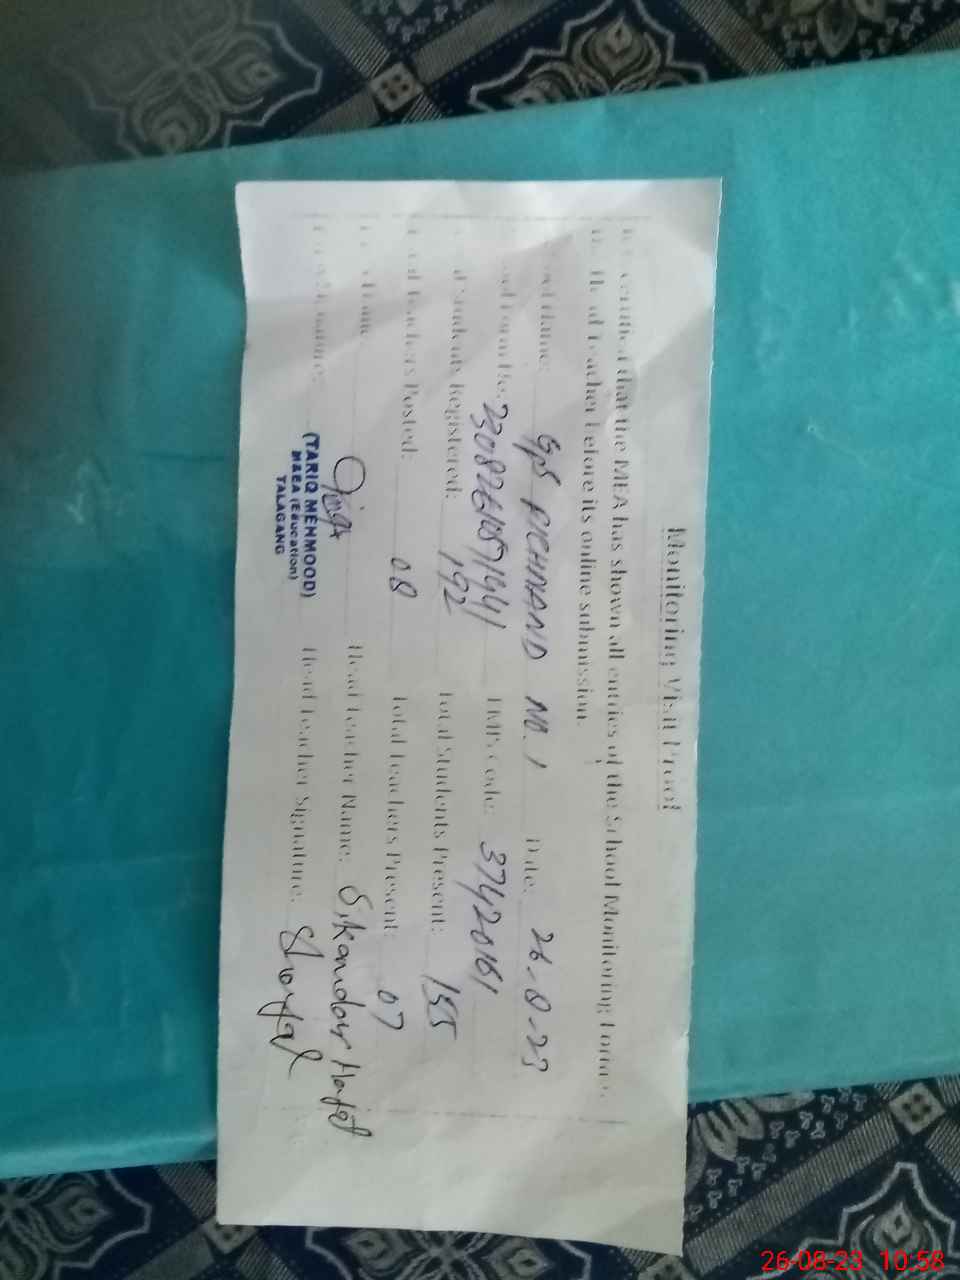 Monitoring Visit Proof
certified that the MEA has shown all entries of the School Monitoring
Head Teacher before its online submission.
Name: GPS PICHNAND NO. 1 Date: 26-8-23
EMIS Code: 37420161
Students Registered: 192 Total Students Present: 155
Teachers Posted: 08 Total Teachers Present: 07
Name: Head Teacher Name: Sikandar
Signature: Head Teacher Signature:
(TARIQ MEHMOOD)
M&EA (Education)
TALAGANG
26-08-23 10:58